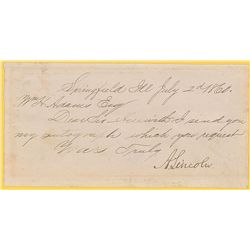 Springfield Ill July 2d 1860.
Wm H Adams Esq
Dear Sir Herewith I send you
my autograph which you request
Yours Truly
A Lincoln